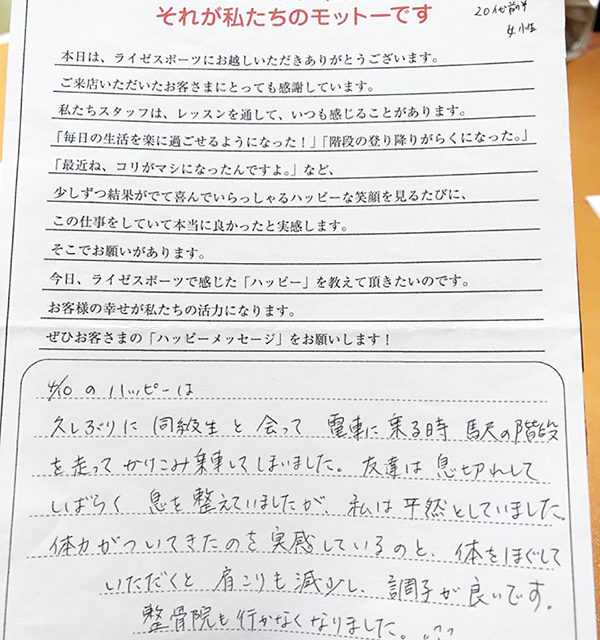 それが私たちのモットーです
20代前半
本日は、ライゼスポーツにお越しいただきありがとうございます。
ご来店いただいたお客さまにとっても感謝しています。
私たちスタッフは、レッスンを通して、いつも感じることがあります。
「毎日の生活を楽に過ごせるようになった！」「階段の登り降りがらくになった。」
「最近ね、コリがマシになったんですよ。」など、
少しずつ結果がでて喜んでいらっしゃるハッピーな笑顔を見るたびに、
この仕事をしていて本当に良かったと実感します。
そこでお願いがあります。
今日、ライゼスポーツで感じた「ハッピー」を教えて頂きたいのです。
お客様の幸せが私たちの活力になります。
ぜひお客さまの「ハッピーメッセージ」をお願いします！
4/10 の ハッピーは
久しぶりに 同級生と 会って 電車に乗る時 駅の階段
を走って かけこみ乗車してしまいました。友達は 息切れして
しばらく 息を整えていましたが、私は平然としていました。
体力がついてきたのを実感しているのと、体をほぐして
いただくと 肩こりも減少し、調子が良いです。
整骨院も行かなくなりました。